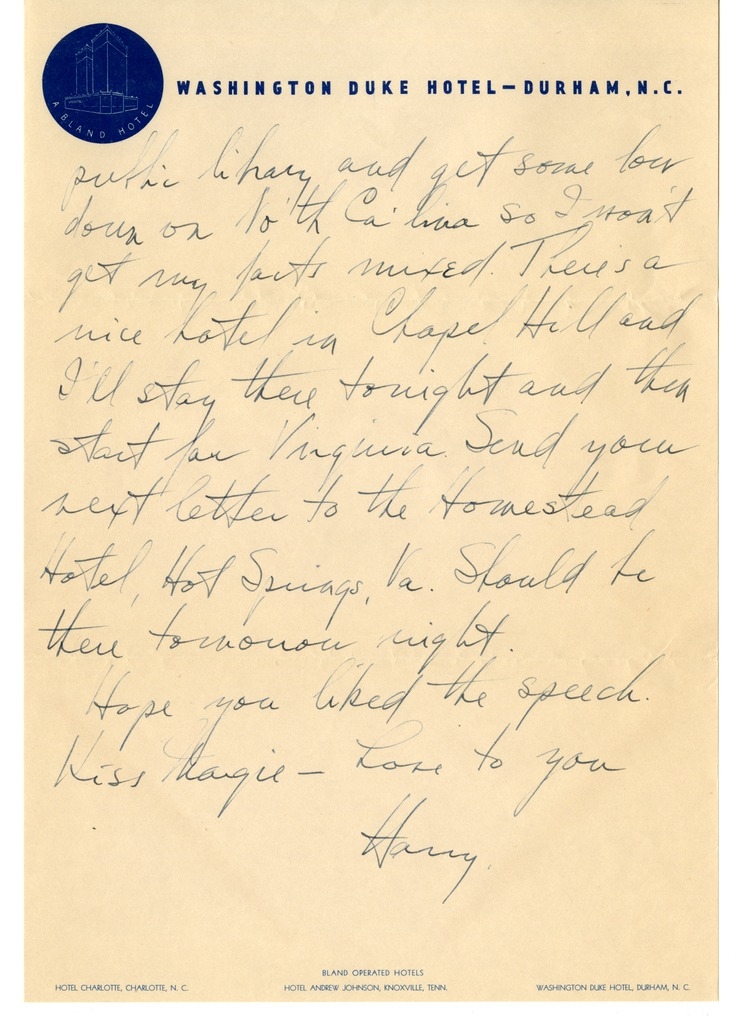 A BLAND HOTEL
WASHINGTON DUKE HOTEL—DURHAM, N.C.
public library and get some low
down on No'th Ca'lina so I won't
get my facts mixed. There is a
nice hotel in Chapel Hill and
I'll stay there tonight and then
start for Virginia. Send your
next letter to the Homestead
Hotel, Hot Springs, Va. Should be
there tomorrow night.
Hope you liked the speech.
Kiss Margie — Love to you
Harry.
BLAND OPERATED HOTELS
HOTEL CHARLOTTE, CHARLOTTE, N. C. HOTEL ANDREW JOHNSON, KNOXVILLE, TENN. WASHINGTON DUKE HOTEL, DURHAM, N. C.